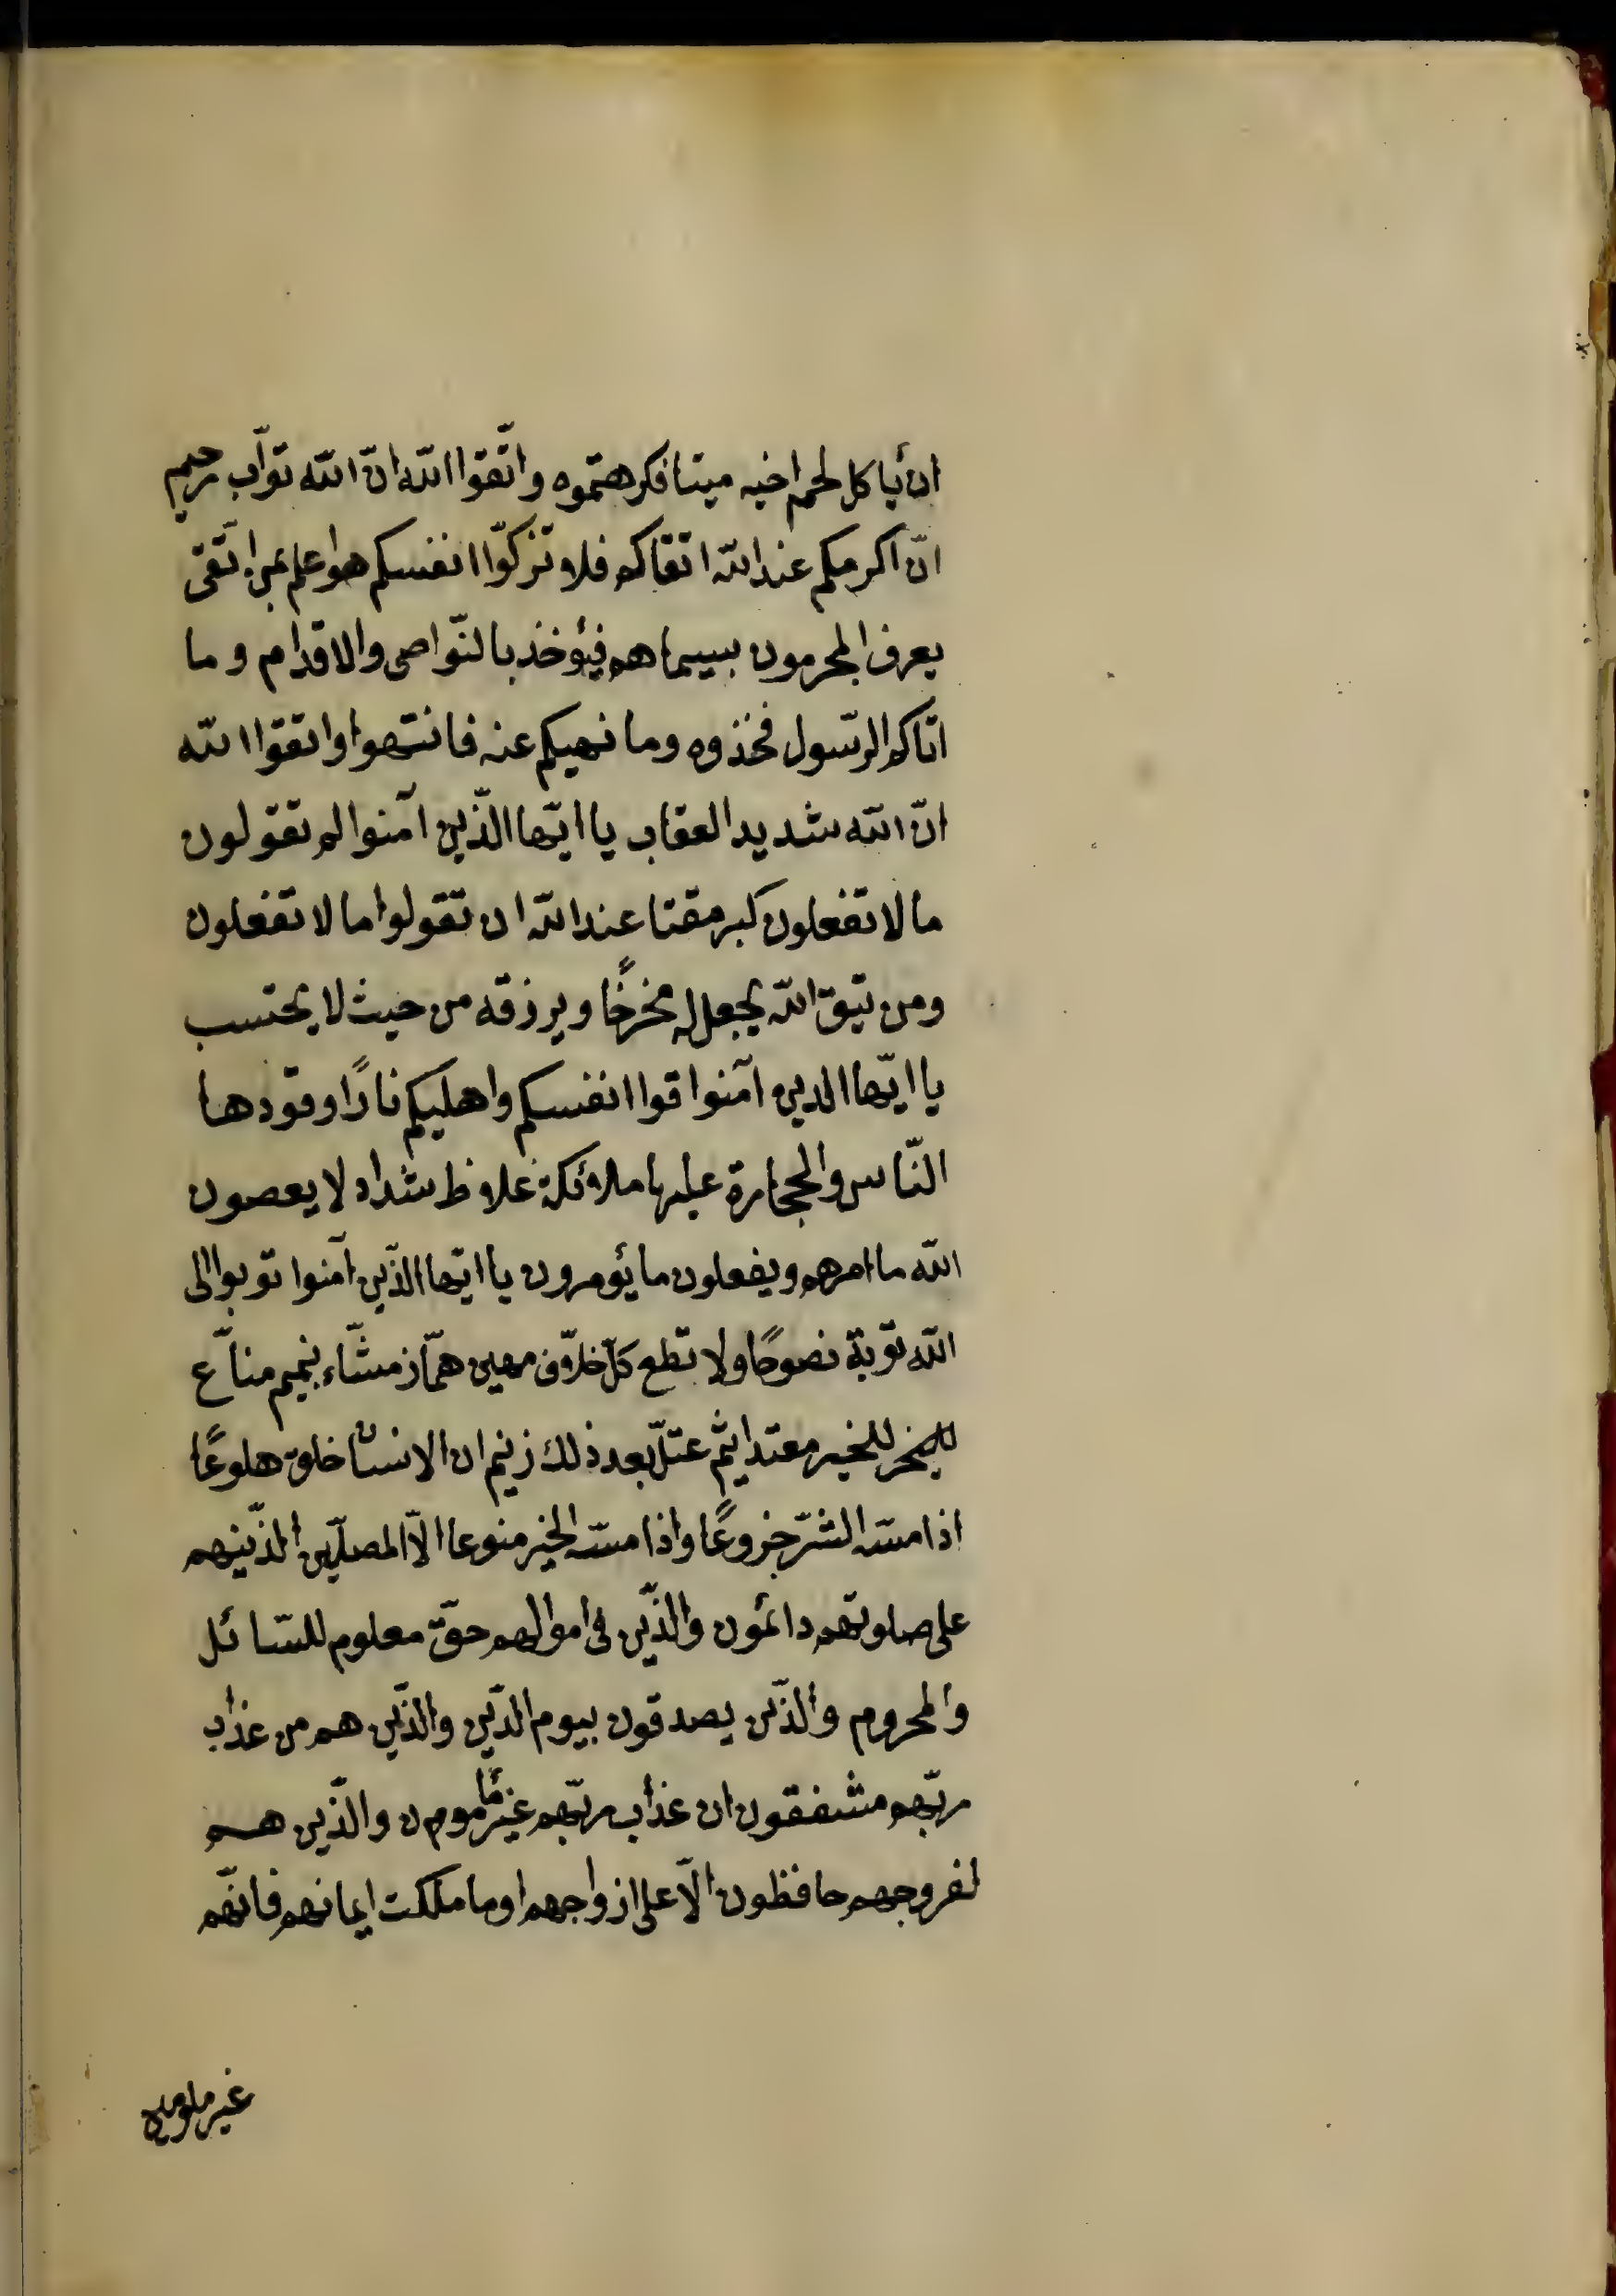 ان يأكل لحم اخيه ميتا فكرهتموه واتّقوا الله انّ الله توّاب رحيم
انّ اكرمكم عند الله اتقاكم فلا تزكّوا انفسكم هو اعلم بمن اتّقى
يعرف المجرمون بسيماهم فيؤخذ بالنّواصى والاقدام وما
اتاكم الرّسول فخذوه وما نهيكم عنه فانتهوا واتقوا الله
انّ الله شديد العقاب يا ايّها الذّين آمنوا لم تقولون
ما لا تفعلون كبر مقتا عند الله ان تقولوا ما لا تفعلون
ومن يتق الله يجعل له مخرجًا ويرزقه من حيث لا يحتسب
يا ايّها الذين آمنوا قوا انفسكم واهليكم نارًا وقودها
النّاس والحجارة عليها ملائكة غلاظ شداد لا يعصون
الله ما امرهم ويفعلون ما يؤمرون يا ايّها الذّين آمنوا توبوا الى
الله توبة نصوحًا ولا تطع كلّ حلاّف مهين همّاز مشّاء بنميم منّاع
للخير معتد اثيم عتلّ بعد ذلك زنيم ان الانسان خلق هلوعًا
اذا مسّه الشّر جزوعًا واذا مسّه الخير منوعا الاّ المصلّين الذّينهم
على صلوتهم دائمون والذّين فى اموالهم حقّ معلوم للسّائل
والمحروم والذّين يصدقون بيوم الدّين والذّين هم من عذاب
ربّهم مشفقون ان عذاب ربّهم غير مأمون والذّين هم
لفروجهم حافظون الاّ على ازواجهم او ما ملكت ايمانهم فانّهم
غير ملومين